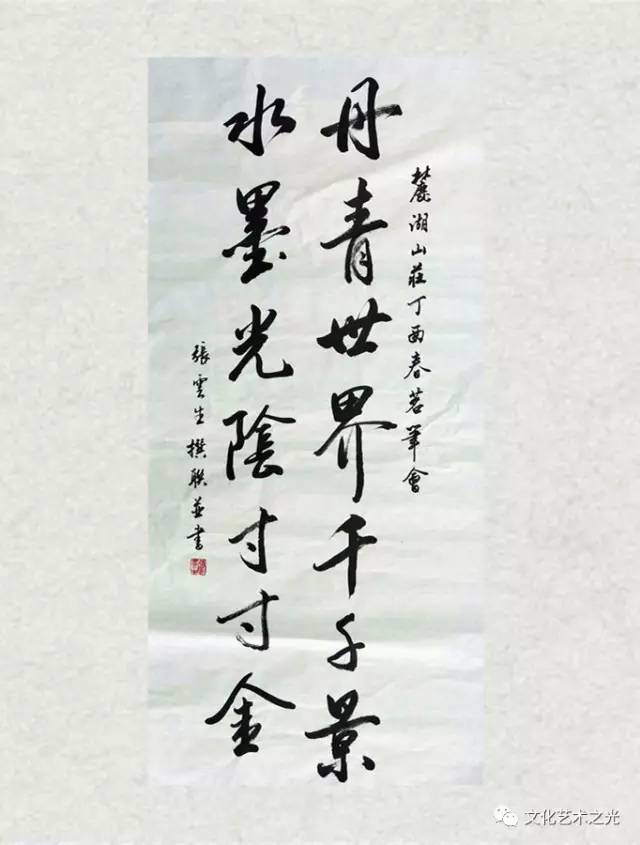 麓湖山莊丁酉春茗筆會
丹青世界千千景
水墨光陰寸寸金
張雲生撰联並書
文化艺术之光